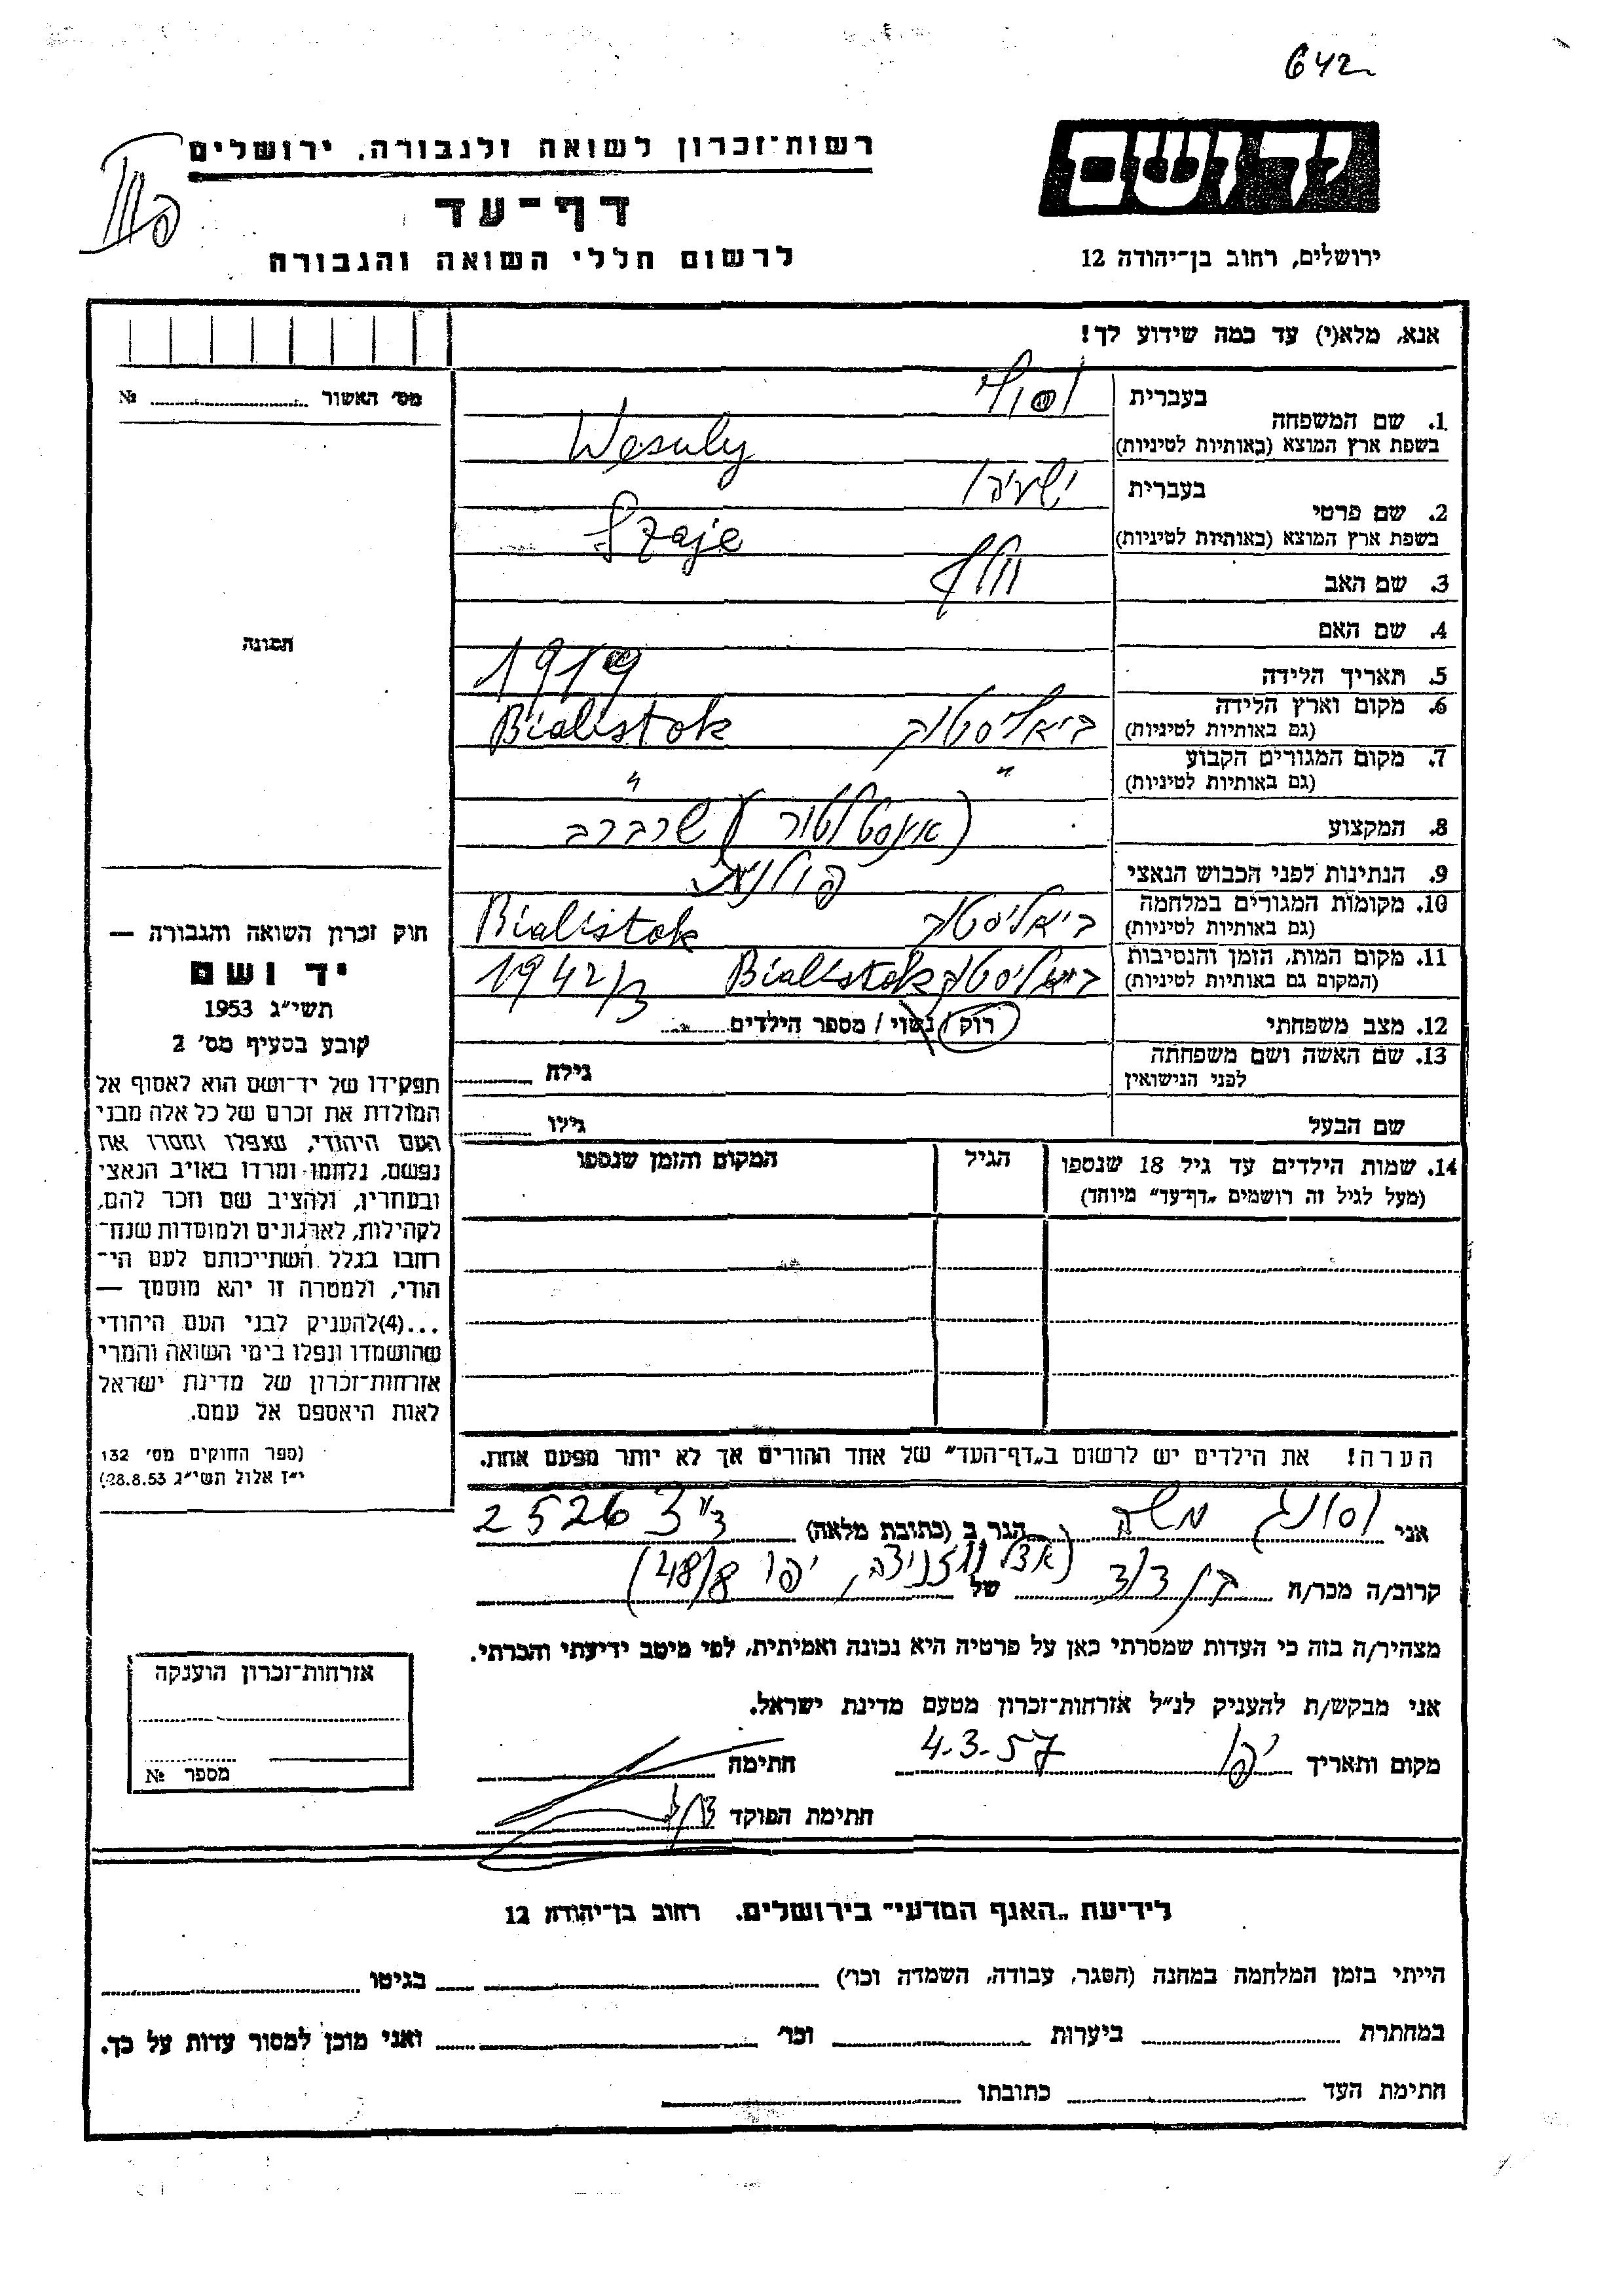 642
רשות-זכרון לשואה ולגבורה, ירושלים
יד ושם
דף-עד
לרשום חללי השואה והגבורה
ירושלים, רחוב בן-יהודה 12
אנא, מלא(י) עד כמה שידוע לך!
מס' האשור № 
תמונה
1. שם המשפחה
בעברית וסולי
בשפת ארץ המוצא (באותיות לטיניות) Wesuly
2. שם פרטי
בעברית ישעיהו
בשפת ארץ המוצא (באותיות לטיניות) Szaje
3. שם האב וולף
4. שם האם
5. תאריך הלידה 1919
6. מקום וארץ הלידה
(גם באותיות לטיניות) ביאליסטוק Bialistok
7. מקום המגורים הקבוע
(גם באותיות לטיניות) " "
8. המקצוע (אינסטלטור) שרברב
9. הנתינות לפני הכבוש הנאצי פולנית
10. מקומות המגורים במלחמה
(גם באותיות לטיניות) ביאליסטוק Bialistok
11. מקום המות, הזמן והנסיבות
(המקום גם באותיות לטיניות) ביאליסטוק Bialistok 1942/3
12. מצב משפחתי רוק / נשוי / מספר הילדים
13. שם האשה ושם משפחתה
לפני הנישואין גילה
שם הבעל גילו
14. שמות הילדים עד גיל 18 שנספו
(מעל לגיל זה רושמים "דף-עד" מיוחד)
הגיל
המקום והזמן שנספו
הערה! את הילדים יש לרשום ב"דף-העד" של אחד ההורים אך לא יותר מפעם אחת.
חוק זכרון השואה והגבורה —
יד ושם
תשי"ג 1953
קובע בסעיף מס' 2
תפקידו של יד-ושם הוא לאסוף אל
המולדת את זכרם של כל אלה מבני
העם היהודי, שנפלו ומסרו את
נפשם, נלחמו ומרדו באויב הנאצי
ובעוזריו, ולהציב שם וזכר להם,
לקהילות, לארגונים ולמוסדות שנח-
רבו בגלל השתייכותם לעם הי-
הודי, ולמטרה זו יהא מוסמך —
...(4)להעניק לבני העם היהודי
שהושמדו ונפלו בימי השואה והמרי
אזרחות-זכרון של מדינת ישראל
לאות היאספם אל עמם.
(ספר החוקים מס' 132
י"ז אלול תשי"ג 28.8.53)
אני משה הגר ב (כתובת מלאה) ד"צ 2526
יפו 48/8)
קרוב/ה מכר/ה בן דוד של
מצהיר/ה בזה כי העדות שמסרתי כאן על פרטיה היא נכונה ואמיתית, לפי מיטב ידיעתי והכרתי.
אני מבקש/ת להעניק לנ"ל אזרחות-זכרון מטעם מדינת ישראל.
מקום ותאריך יפו 4.3.57 חתימה
חתימת הפוקד
אזרחות-זכרון הוענקה
מספר №
לידיעת "האגף המדעי" בירושלים. רחוב בן-יהודה 12
הייתי בזמן המלחמה במחנה (הסגר, עבודה, השמדה וכו') בגיטו
במחתרת ביערות וכו' ואני מוכן למסור עדות על כך.
חתימת העד כתובתו